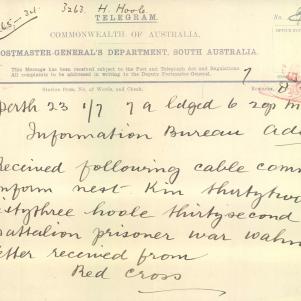 3263. H. Hoole
TELEGRAM.
COMMONWEALTH OF AUSTRALIA.
POSTMASTER-GENERAL'S DEPARTMENT, SOUTH AUSTRALIA.
This Message has been received subject to the Post and Telegraph Act and Regulations.
All complaints to be addressed in writing to the Deputy Postmaster-General.
Station from, No. of Words, and Check.
Remarks.
Perth 23 1/7 7 a ldged 6 20p m
Information Bureau Ade
Received following cable comm
inform next Kin thirtytwo
sixtythree hoole thirtysecond
battalion prisoner war wahn
letter received from
Red Cross